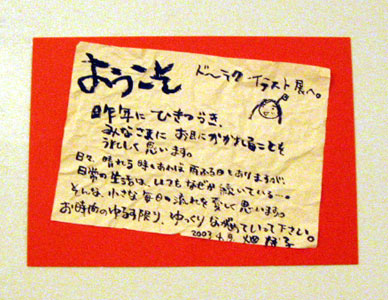 ようこそ
ドーラク・イラスト展へ。
昨年にひきつづき、
みなさまに お目にかかれることを
うれしく思います。
日々、晴れる時もあれば 雨ふる日もありますが、
日常の生活は、いつもなぜか続いている…。
そんな、小さな毎日の流れを愛しく思います。
お時間のゆるす限り、ゆっくりながめていって下さい。
2003.4.9. 畑